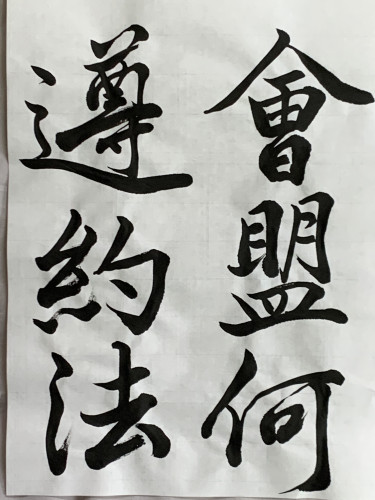 會盟何
遵約法